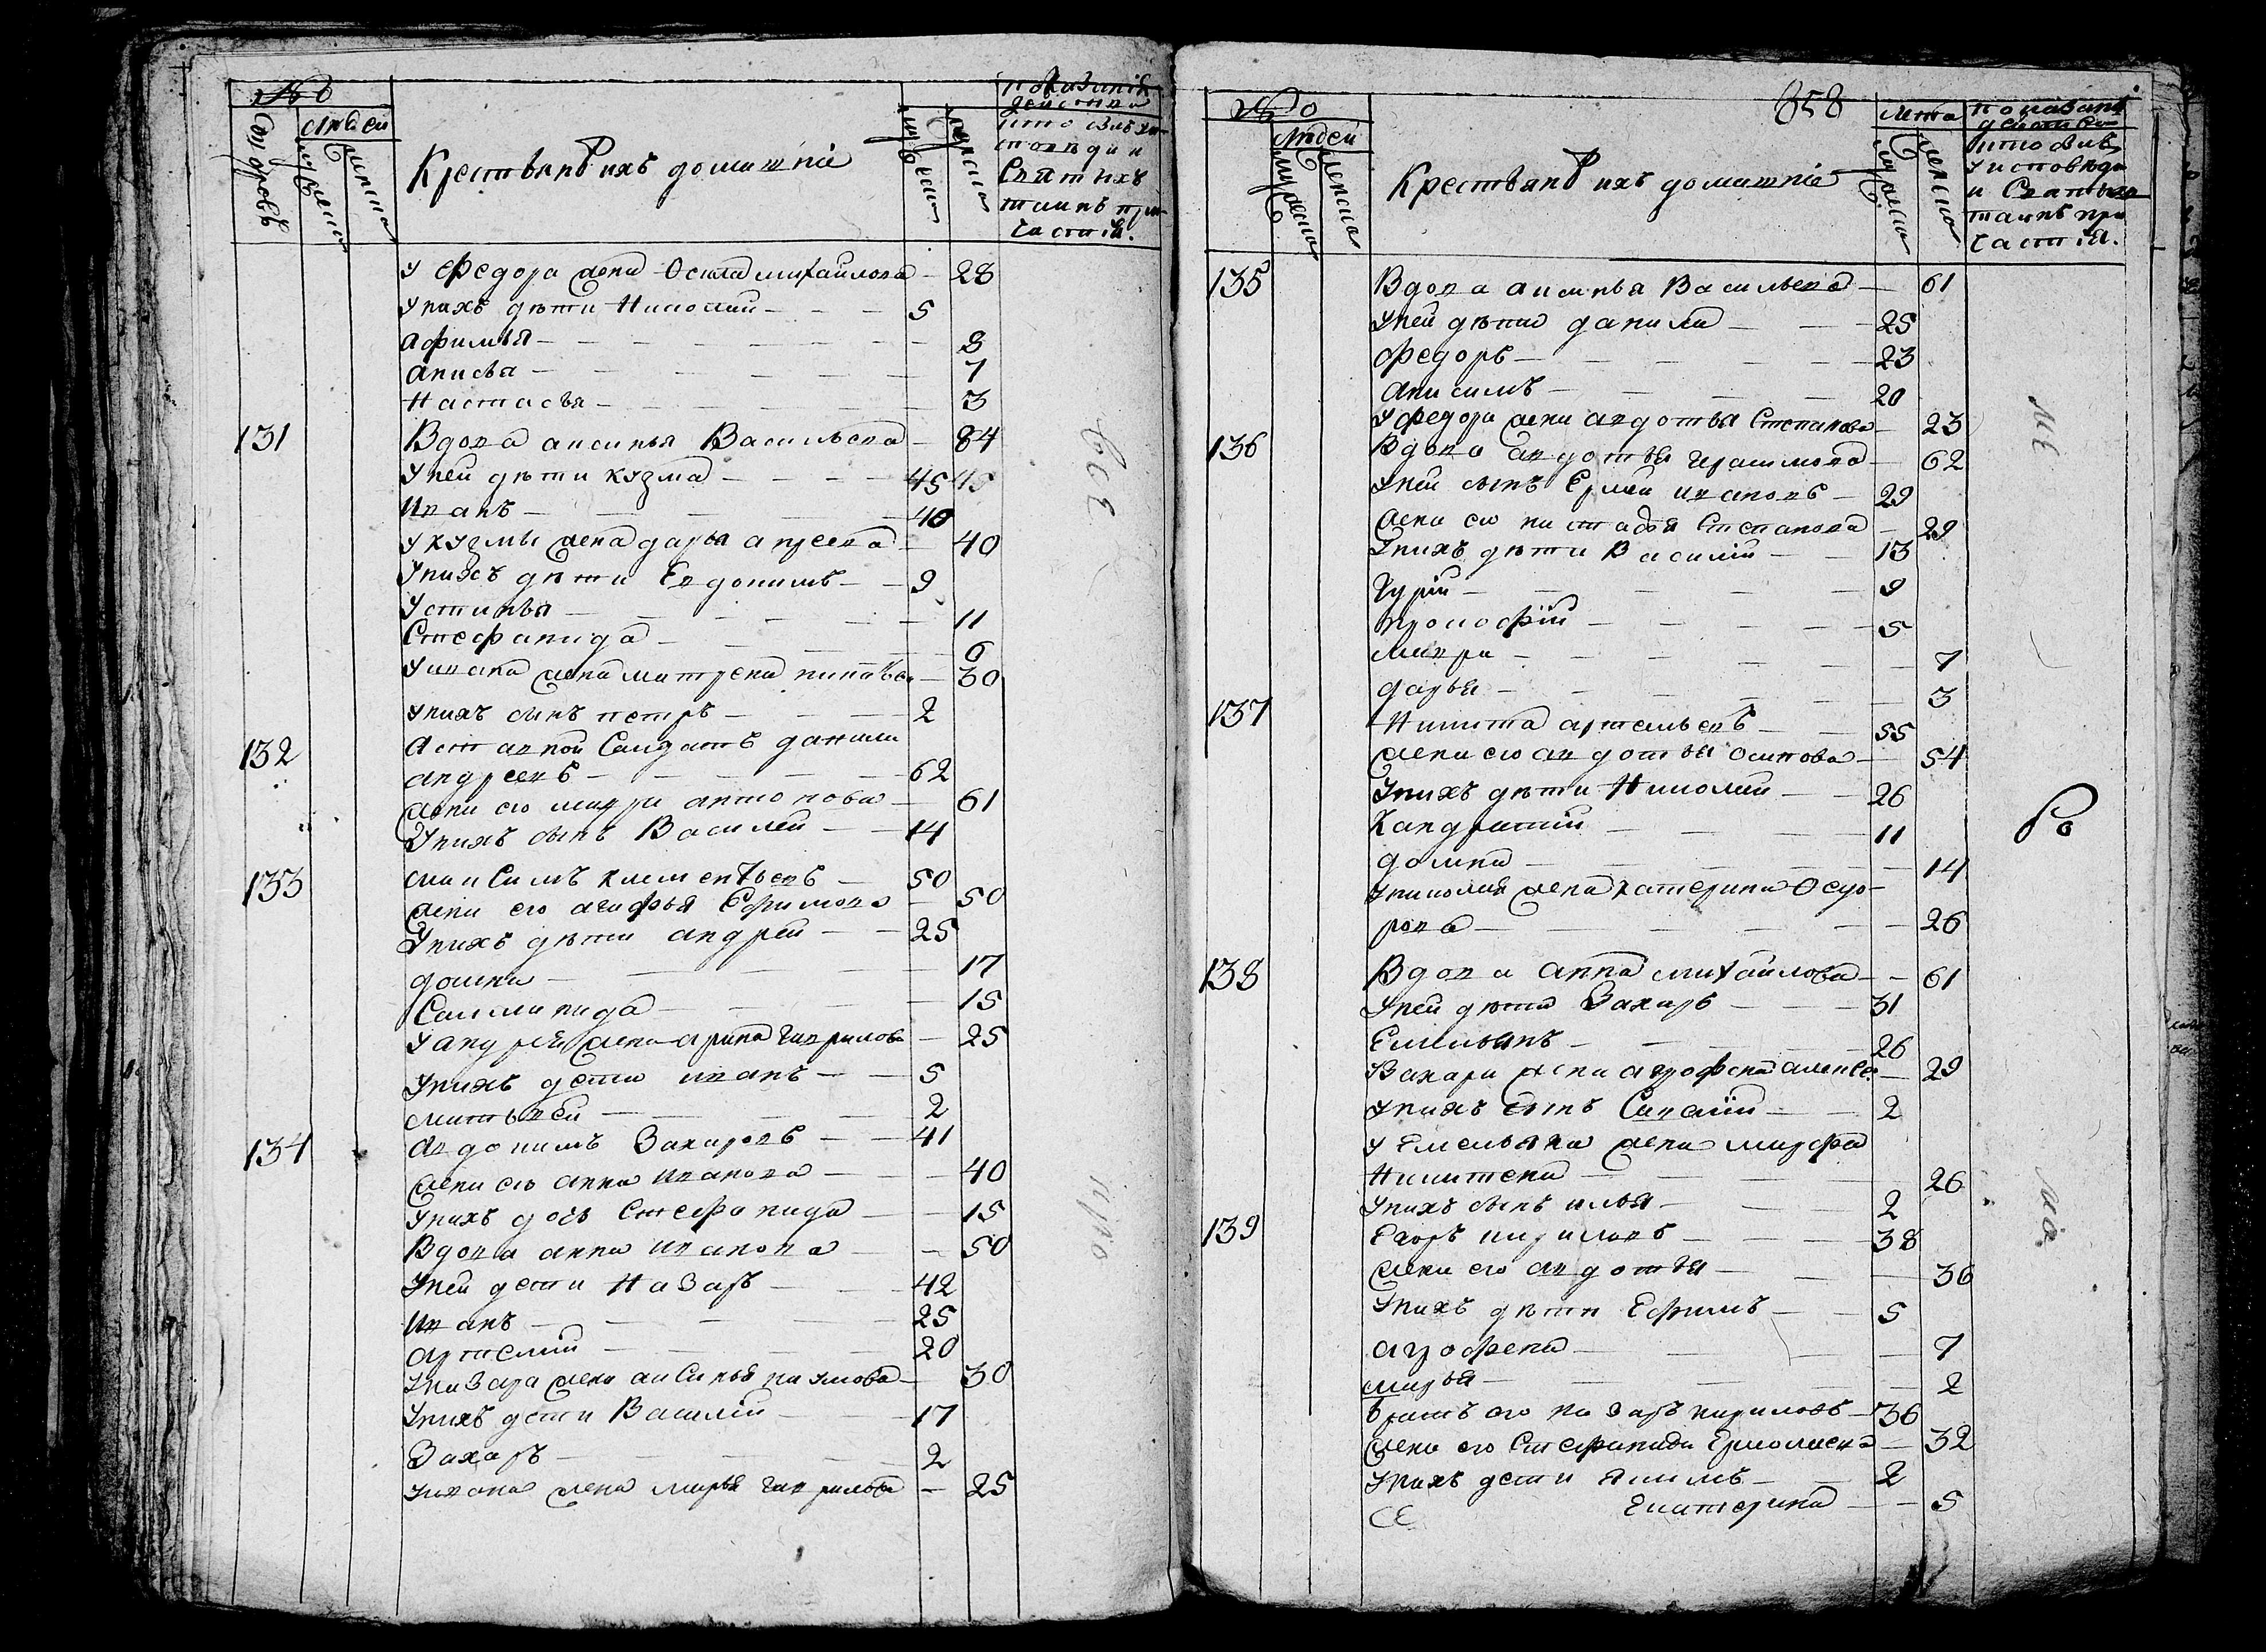 №
Людеи
Дворовъ
мужеска
женска
Крестьянѣ ихъ домашнiе
мужеска
женска
показанiе
действа
кто былъ
исповеди и
Святыхъ
таинъ при
частiя.
У Федора жена Осипа михаилова — 28
У нихъ дѣти Николаи — 5
афимья — 8
анисья — 7
Настасья — 3
131 Вдова аксинья Васильева — 84
У неи дѣти кузма — 45
Иванъ — 40
У кузмы жена дарья андреева — 40
У нихъ дѣти Евдокимъ — 9
Устинья — 11
Стефанида — 6
У ивана жена матрена никитьева — 30
У нихъ сынъ петръ — 2
132 Отставнои Салдатъ данила
андреевъ — 62
жена его марфа антонова — 61
У нихъ сынъ Василеи — 14
133 Максимъ клементьевъ — 50
жена его агафья Ефимова — 50
У нихъ дѣти андреи — 25
домна — 17
Саламанида — 15
У андрея жена арина гаврилова — 25
У нихъ дети иванъ — 5
матвеи — 2
134 Авдокимъ Захаровъ — 41
жена его анна Иванова — 40
У нихъ дочь Стефанида — 15
Вдова анна иванова — 50
У неи дети Назаръ — 42
Иванъ — 25
артемии — 20
У назара жена аксинья наумова — 30
У нихъ дети Василiи — 17
Захаръ — 2
У ивана жена марья гаврилова — 25
858
№
Людеи
мужеска
женска
Крестьянѣ ихъ домашнiе
Лета
мужеска
женска
показанiе
действа
кто былъ
у исповеди
и Святыхъ
таинъ при
частiя.
135 Вдова аксинья Васильева — 61
У неи дѣти данила — 25
федоръ — 23
анисимъ — 20
У федора жена авдотья Степанова — 23
136 Вдова авдотья герасимова — 62
У неи сынъ Ермеи ивановъ — 29
жена его настасья Степанова — 29
У нихъ дѣти Василiи — 13
Гурiи — 9
прокофiи — 5
мавра — 7
дарья — 3
137 Никита артемьевъ — 55
жена его авдотья осипова — 54
У нихъ дѣти Николаи — 26
Кандратiи — 11
домна — 14
У николая жена катерина Федо-
рова — 26
138 Вдова анна михаилова — 61
У неи дѣти Захаръ — 31
Емельянъ — 26
Захара жена аграфена алексе — 29
У нихъ сынъ Савалiи — 2
У Емельяна жена марфа
Никитена — 26
У нихъ сынъ илья — 2
139 Егоръ кириловъ — 38
жена его авдотья — 36
У нихъ дѣти Ефимъ — 5
аграфена — 7
марья — 2
братъ его назаръ кириловъ — 36
жена его Стефанида Ермолаева — 32
У нихъ дети Якимъ — 2
Екатерина — 5